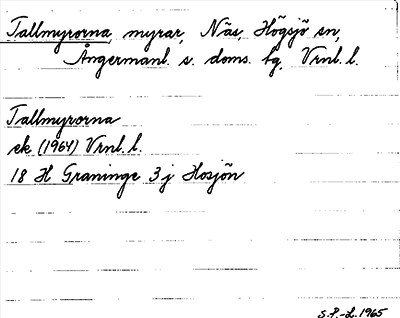 Tallmyrorna, myrar, Näs, Högsjö sn,
Ångermanl. s. doms. tg, Vrnl. l.
Tallmyrorna
ek (1964) Vrnl. l.
18 H Graninge 3 j Hosjön
S.P.-L. 1965